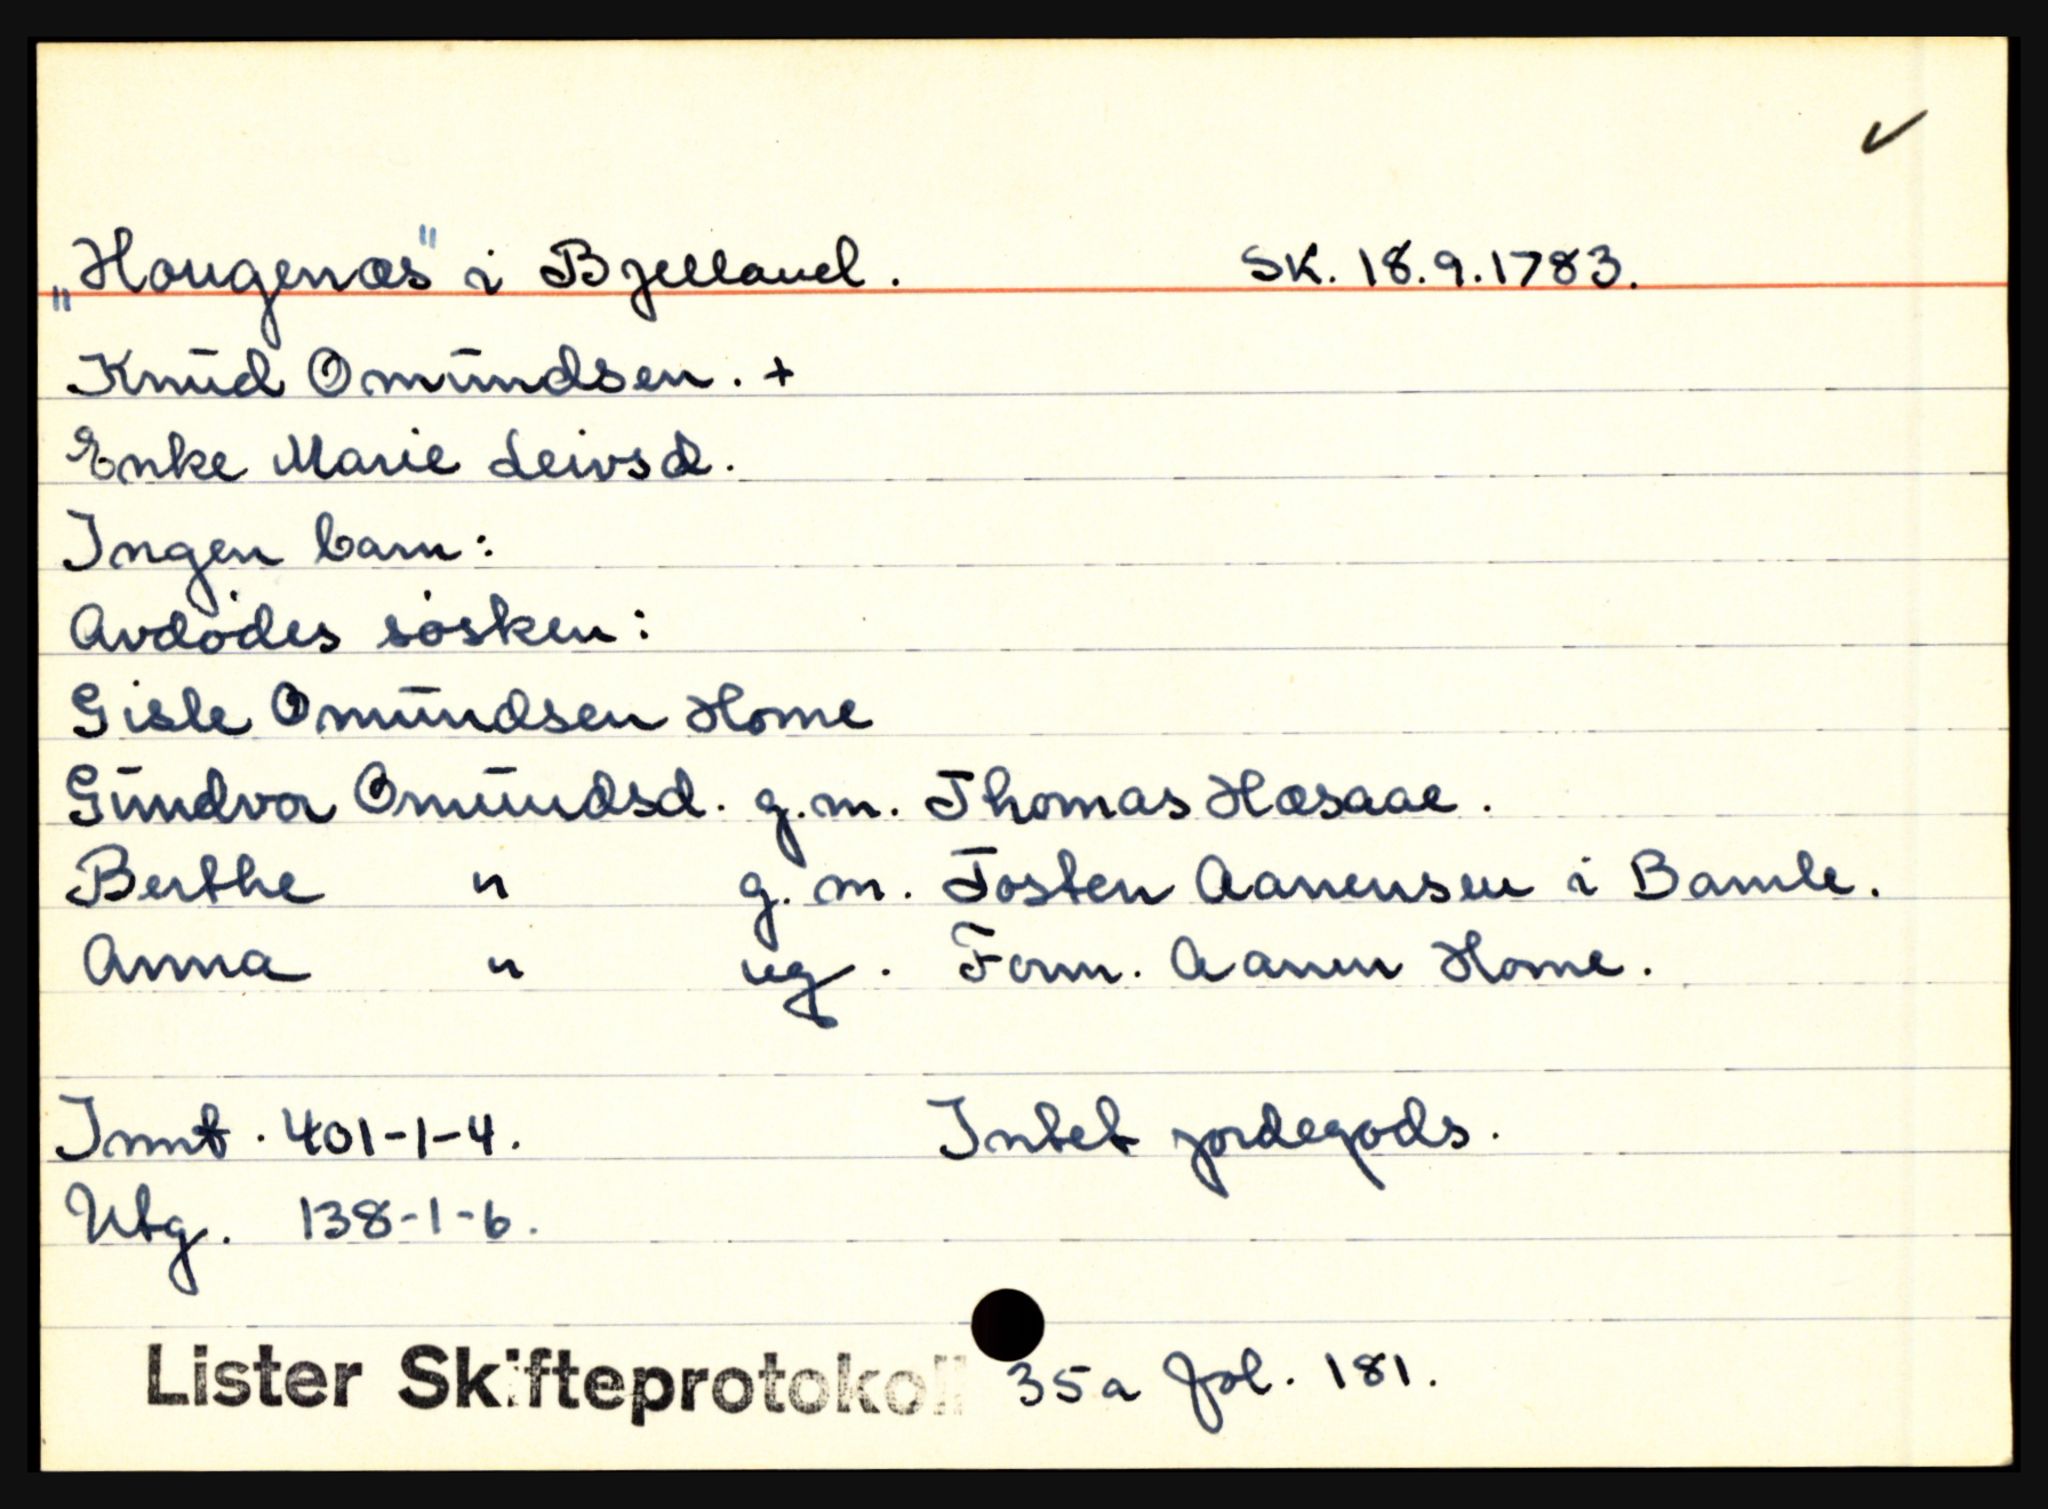 „Hougenæs" i Bjelland. SK. 18.9.1783.
Knud Omundsen. +
Enke Marie Leivsd.
Ingen barn:
Avdødes søsken:
Gisle Omundsen Home
Gundvor Omundsd. g.m. Thomas Hæsaae.
Berthe " g.m. Tosten Aanensen i Bamle.
Anna " ug. Form. Aanen Home.
Innt. 401-1-4. Intet jordegods.
Utg. 138-1-6.
Lister Skifteprotokoll 35a fol. 181.